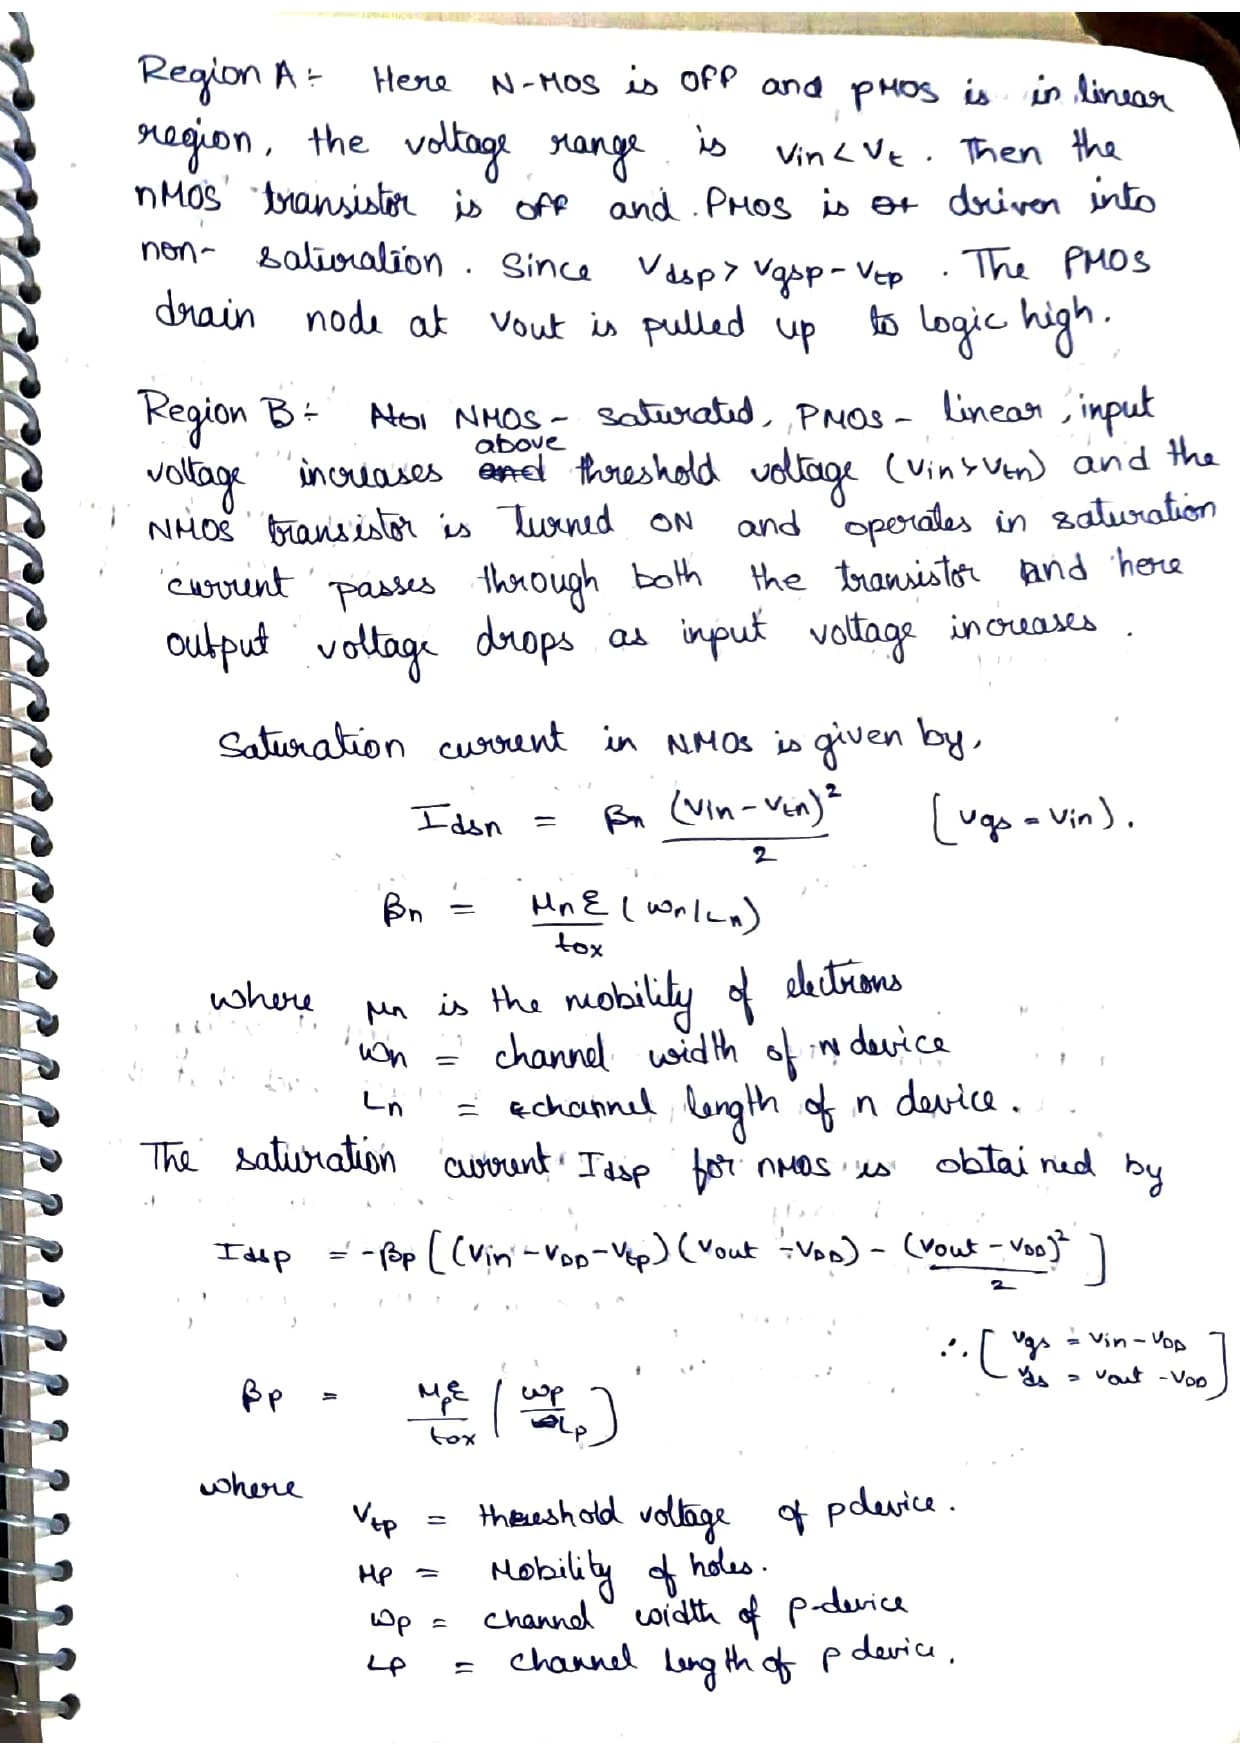 Region A :- Here N-MOS is OFF and pMOS is in linear
region, the voltage range is Vin < Vt . Then the
nMOS transistor is off and PMOS is driven into
non- saturation . Since Vdsp > Vgsp - Vtp . The PMOS
drain node at Vout is pulled up to logic high.
Region B :- NMOS - saturated, PMOS - Linear, input
voltage increases above threshold voltage (Vin > Vtn) and the
NMOS transistor is Turned ON and operates in saturation
current passes through both the transistor and here
output voltage drops as input voltage increases .
Saturation current in NMOS is given by,
Idsn = βn (Vin - Vtn)² / 2 [Vgs = Vin).
βn = μn ε / tox (Wn/Ln)
where μn is the mobility of electrons
Wn = channel width of n device
Ln = channel length of n device.
The saturation current Idsp for nMOS is obtained by
Idsp = -βp [(Vin - VDD - Vtp) (Vout - VDD) - (Vout - VDD)² / 2 ]
∴ [ Vgs = Vin - VDD
Vds = Vout - VDD ]
βp = μp ε / tox ( Wp / Lp )
where
Vtp = threshold voltage of p device.
μp = Mobility of holes.
Wp = channel width of p-device
Lp = channel length of p device.